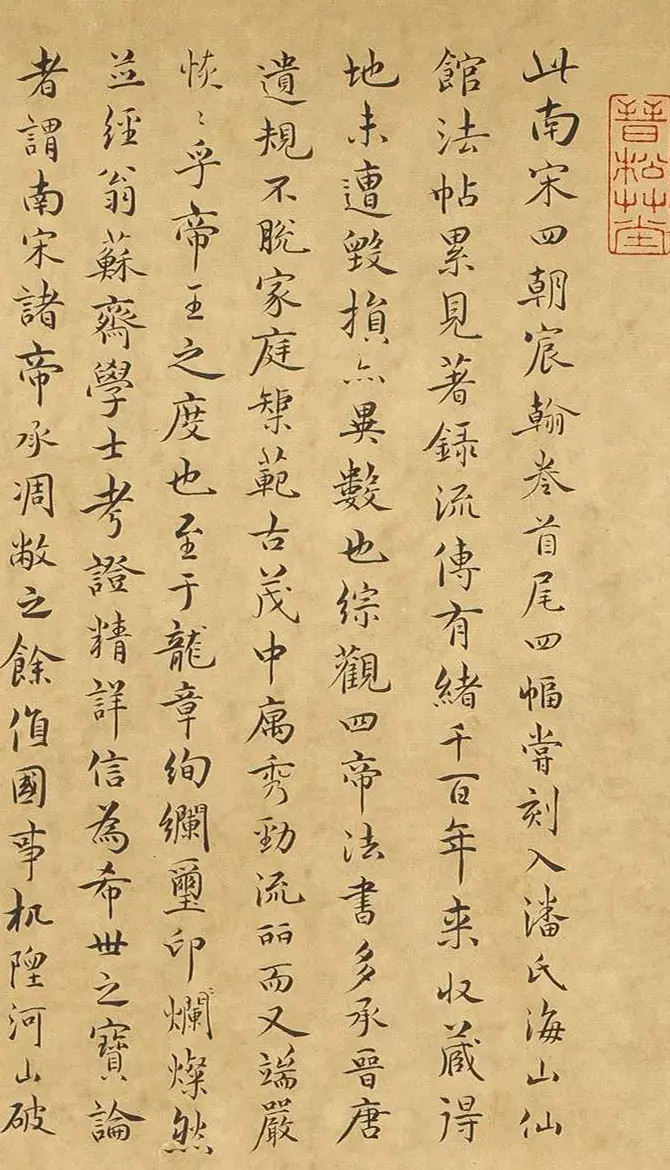 晉松草堂
此南宋四朝宸翰卷首尾四幅嘗刻入潘氏海山仙
館法帖累見著錄流傳有緒千百年来收藏得
地未遭毀損亦異數也綜觀四帝法書多承晉唐
遺規不脫家庭榘範古茂中寓秀勁流麗而又端嚴
恢〻乎帝王之度也至于龍章絢斕璽印爛燦然
並經翁蘇齋學士考證精詳信為希世之寶論
者謂南宋諸帝承凋敝之餘值國事机隉河山破